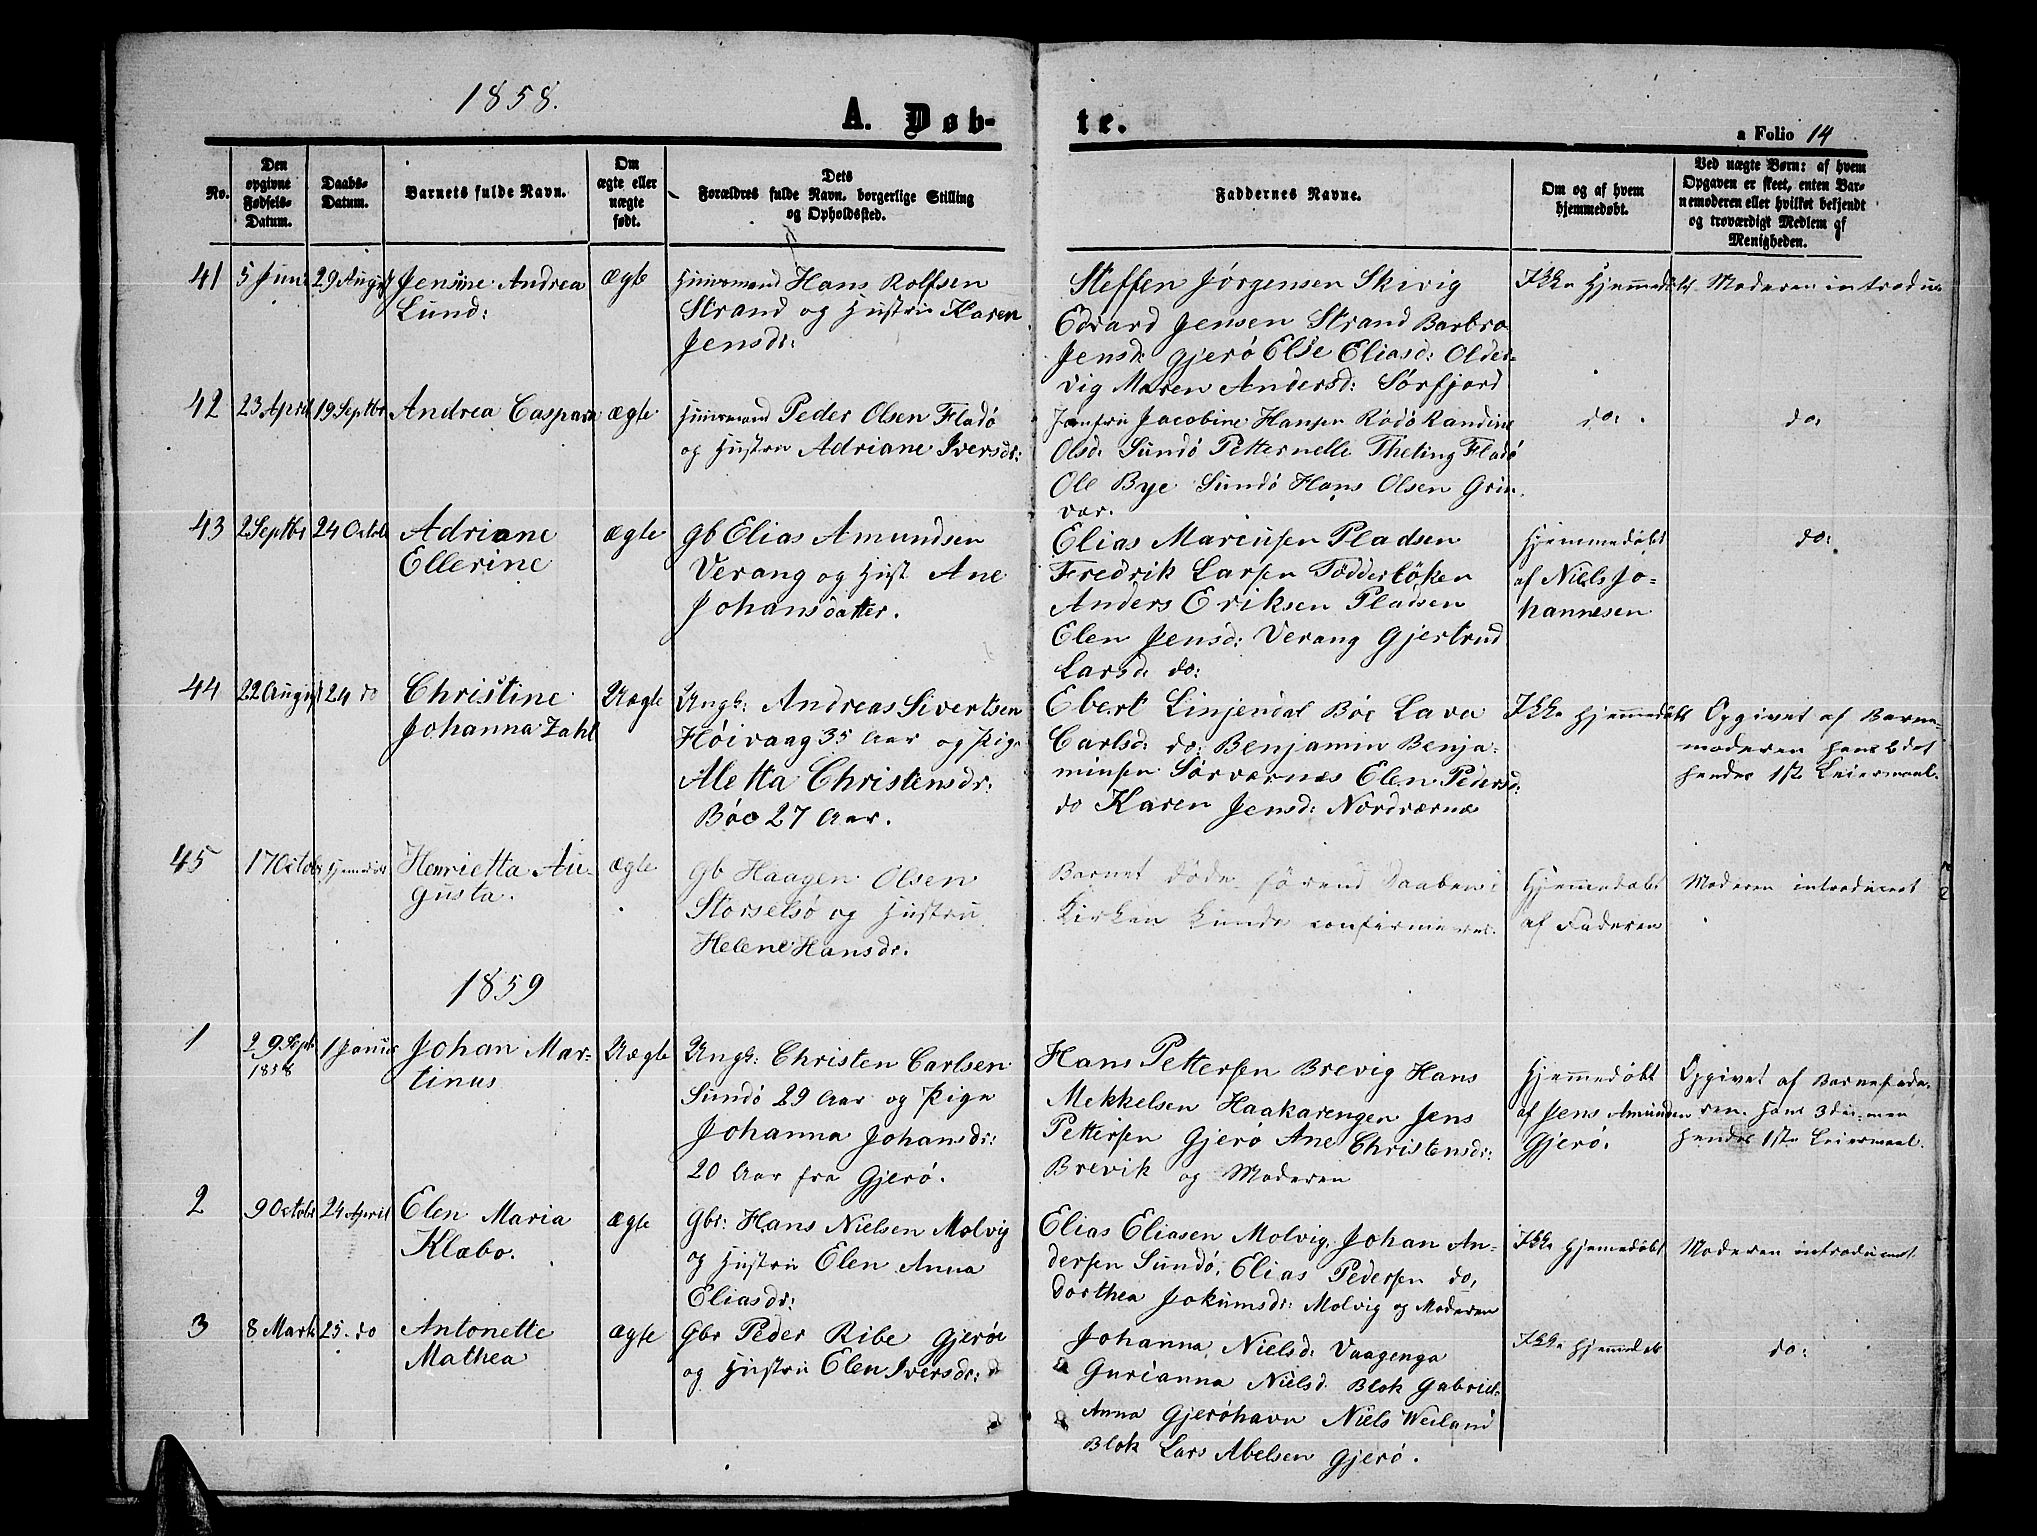 1858.
A. Døb-
te.
a Folio 14
No.
Den opgivne Fødsels-Datum.
Daabs-Datum.
Barnets fulde Navn.
Om ægte eller uægte født.
Dets Forældres fulde Navn, borgerlige Stilling og Opholdssted.
Faddernes Navne.
Om og af hvem hjemmedøbt.
Ved uægte Børn: af hvem Opgaven er skeet, enten Barnemoderen eller hvilket bekjendt og troværdigt Medlem af Menigheden.
41 5 Juni 29 August Jensine Andrea ægte Huusmand Hans Rolfsen
Lund: Strand og Hustru Karen
Jensdr:
Steffen Jørgensen Skivig
Edvard Jensen Strand Barbro
Jensd: Gjerö Else Eliasd: Older-
vig Maren Andersd: Sörfjord
Ikke Hjemmedöbt Moderen introdu
42 23 April 19 Septbr Andrea Caspara ægte Huusmand Peder Olsen Fladö
og Hustru Adriane Iversdr:
Jomfru Jacobine Hansen Rödö Randine
Olsd: Sundö Petternelle Theting Fladö
Ole Bye Sundö Hans Olsen Grin
vær.
do: do:
43 2 Septbr 24 Octob Adriane ægte Gb Elias Amundsen
Ellerine Verang og Hust Ane
Johansdatter.
Elias Marcusen Pladsen
Fredrik Larsen Tödderlöken
Anders Eriksen Pladsen
Elen Jensd: Verang Gjertrud
Larsd: do:
Hjemmedöbt
af Niels Jo-
hannesen
do:
44 22 August 24 do Christine Uægte Ungk: Andreas Sivertsen
Johanna Zahl Höivaag 35 Aar og Pige
Aletta Christensdr:
Böe 27 Aar.
Ebert Linjendal Böe Lava
Carlsd: do: Benjamin Benja-
minsen Sörværnes Elen Pedersd:
do Karen Jensd: Nordværnæs
Ikke Hjemmedöbt Opgivet af Barne
moderen hans 6det
hendes 1ste Leiermaal.
45 17 Octob Hjemmedöbt Henrietta Au- ægte Gb Haagen Olsen
gusta. Storselsö og Hustru
Helene Hansdr:
Barnet döde förend Daaben i
Kirken kunde confirmeres.
Hjemmedöbt
af Faderen
Moderen introduceret
1859
1 29 Septr 1858 1 Januar Johan Mar- Uægte Ungk: Christen Carlsen
tinus Sundö 29 Aar og Pige
Johanna Johansdr:
20 Aar fra Gjerö.
Hans Pettersen Brevig Hans
Mekkelsen Haakarengen Jens
Pettersen Gjerö Ane Christensdr:
Brevik og Moderen
Hjemmedöbt
af Jens Amundsen
Gjerö.
Opgivet af Barnefade
ren. hans 3die, men
hendes 1ste Leiermaal.
2 9 Octobr 24 April Elen Maria ægte Gbr: Hans Nielsen Molvig
Klæbo. og Hustru Elen Anna
Eliasdr:
Elias Eliasen Molvig, Johan An-
dersen Sundö, Elias Pedersen do,
Dorthea Jokumsdr: Molvig og Moderen
Ikke Hjemmedöbt Moderen introduceret
3 8 Marts 25. do Antonette ægte Gbr Peder Ribe Gjeröe
Mathea og Hustru Elen Iversdr:
Johanna Nielsd: Vaagenga
Gurianna Nielsd Blok Gabriel-
Anna Gjeröhavn Niels Weiland
Blok Lars Abelsen Gjerö.
Ikke Hjemmedöbt
do: